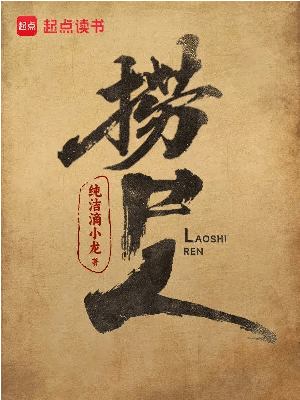 起点 起点读书
捞尸人
纯洁滴小龙 著
LAOSHI
REN